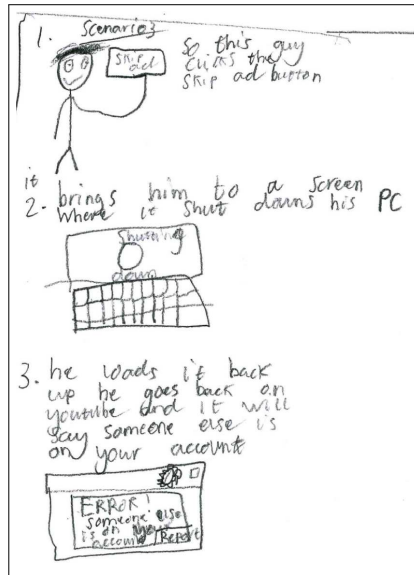 Scenario3
1.
skip
ad
So this guy
clicks the
skip ad button
it
2. brings him to a screen
where it shut downs his PC
shutting
down
3. he loads it back
up he goes back on
youtube and it will
say someone else is
on your account
ERROR!
someone else
is on your
account
Report